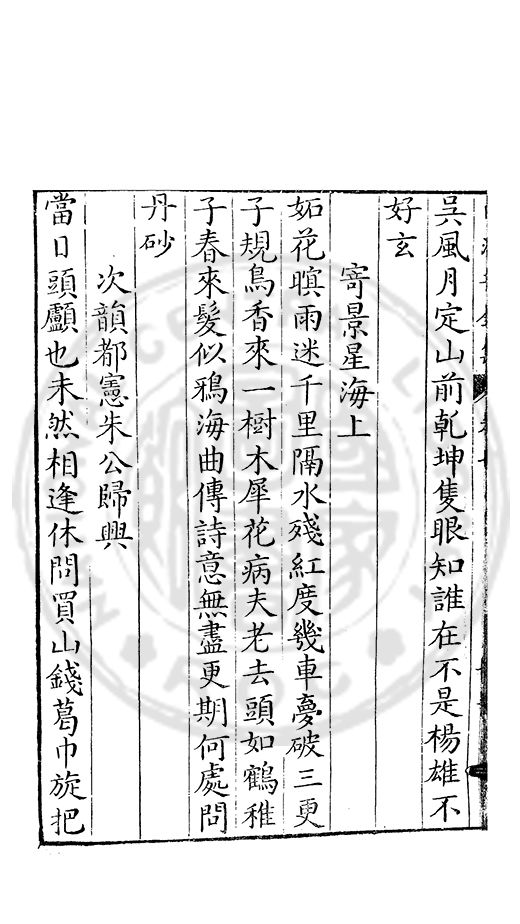 吳風月定山前乾坤隻眼知誰在不是楊雄不
好玄
寄景星海上
妬花暝雨迷千里隔水殘紅度幾車夢破三更
子規鳥香來一樹木犀花病夫老去頭如鶴稚
子春來髮似鴉海曲傳詩意無盡更期何處問
丹砂
次韻都憲朱公歸興
當日頭顱也未然相逢休問買山錢葛巾旋把